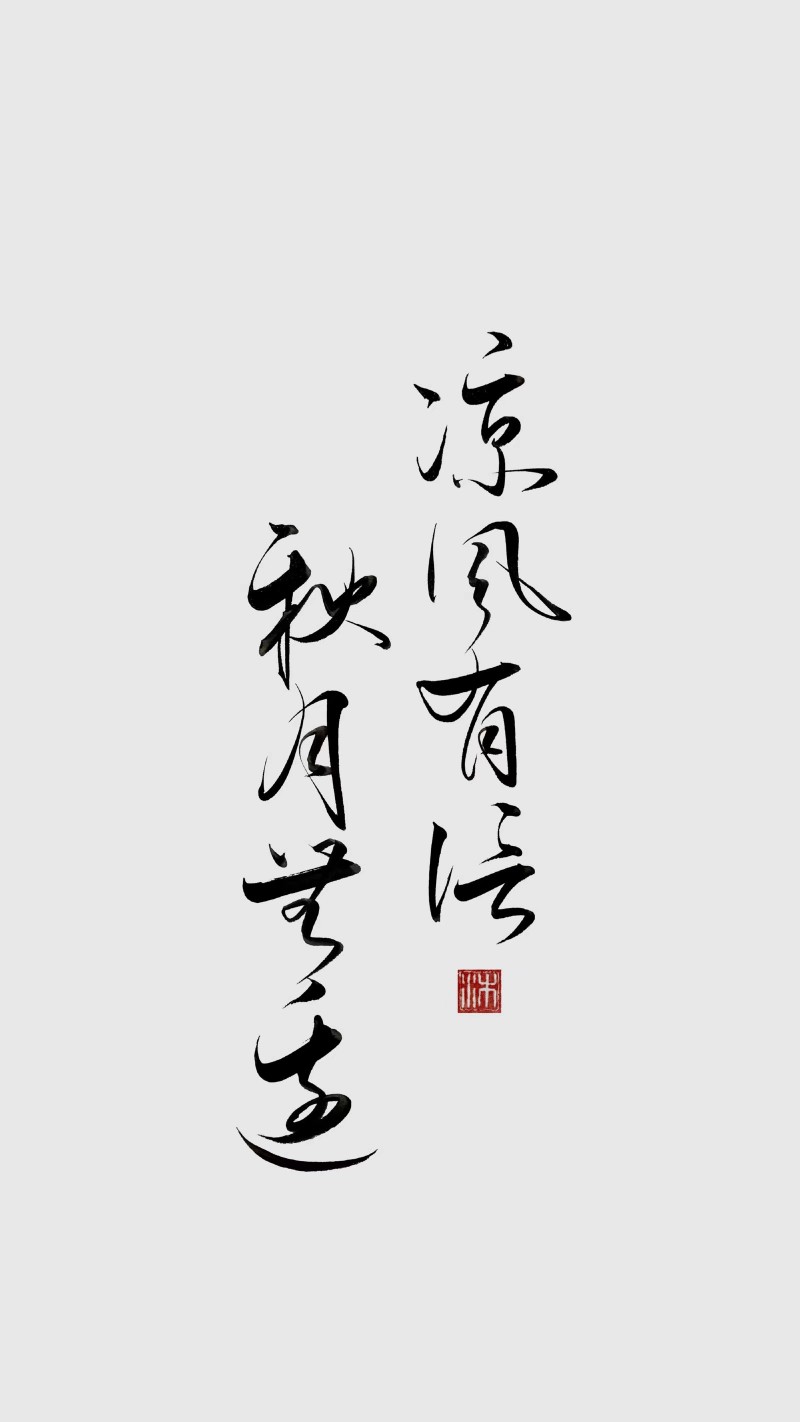 凉风有信
秋月無边